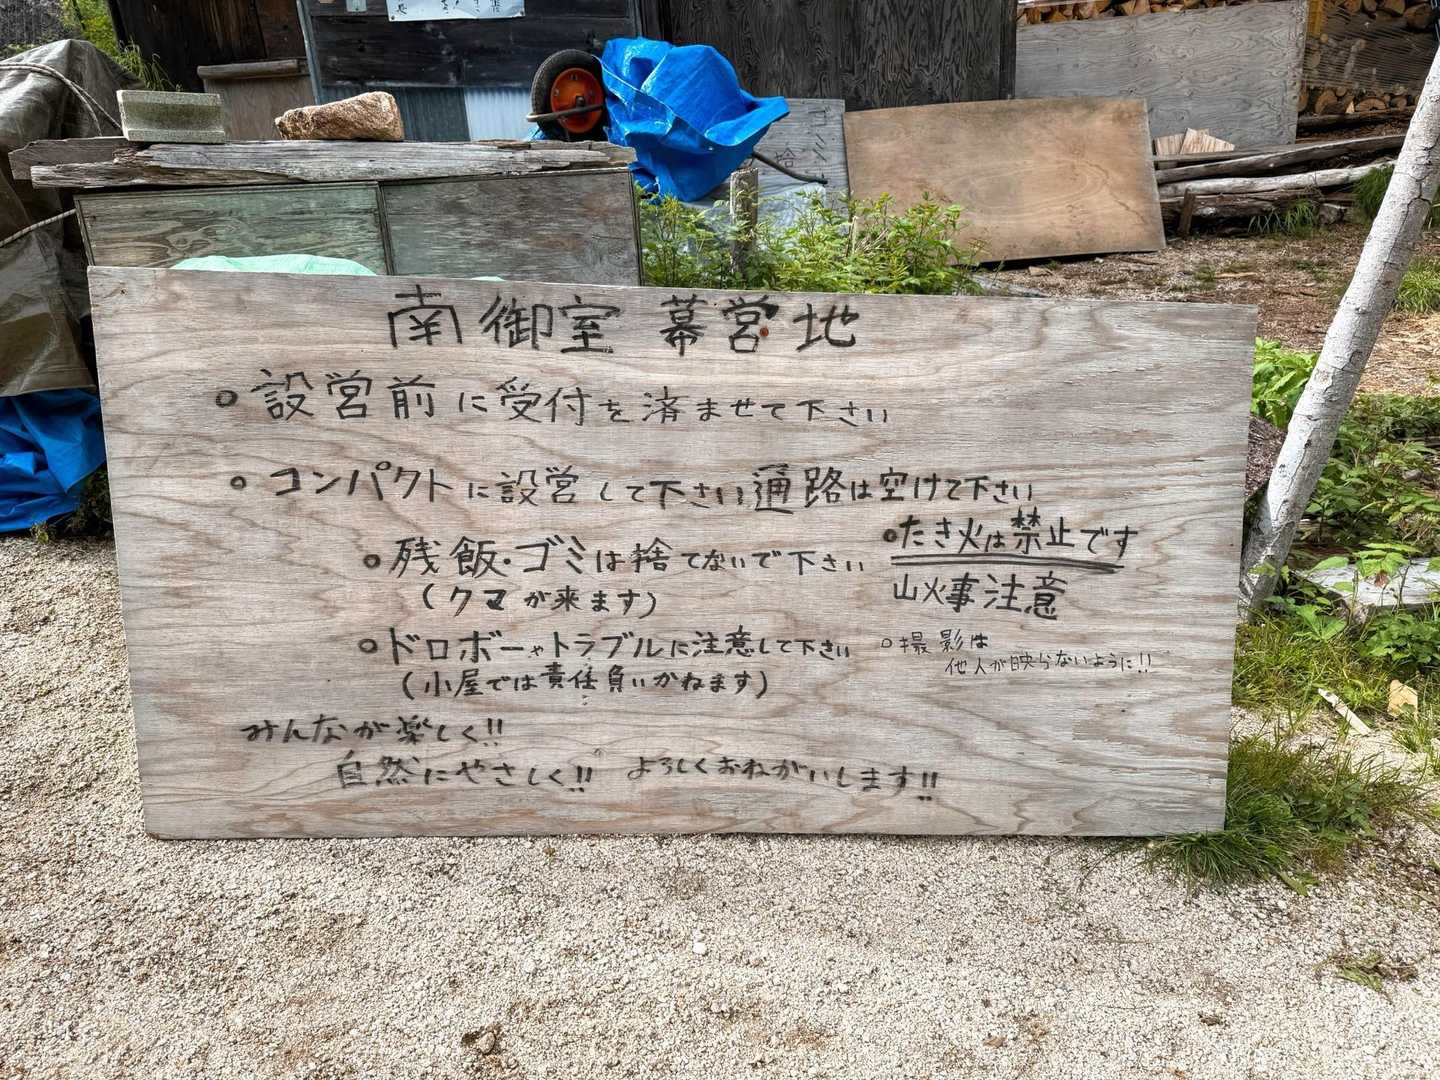 南御室 幕営地
○設営前に受付を済ませて下さい
○コンパクトに設営して下さい通路は空けて下さい
○残飯・ゴミは捨てないで下さい
(クマが来ます)
○たき火は禁止です
山火事注意
○ドロボーやトラブルに注意して下さい
(小屋では責任負いかねます)
○撮影は
他人が映らないように!!
みんなが楽しく!!
自然にやさしく!! よろしくおねがいします!!